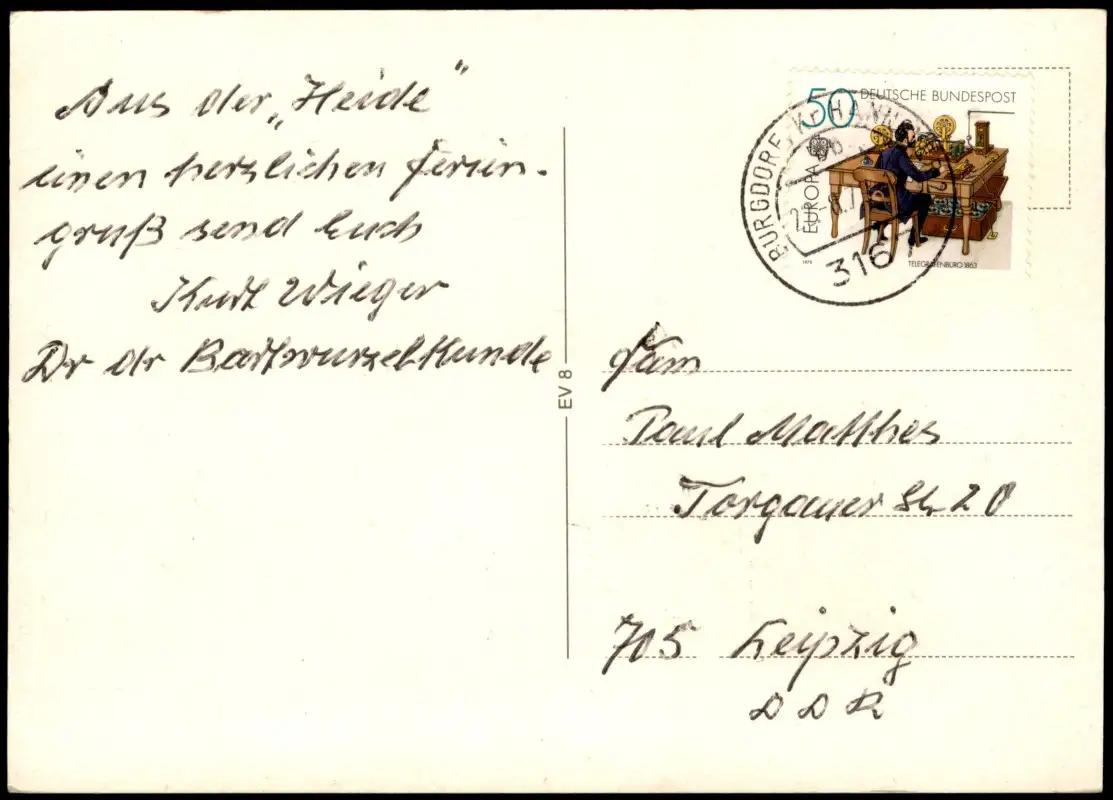 Aus der „Heide"
einen herzlichen Ferien-
gruß send Euch
Kurt Wieger
Dr dr Bartwurzelkunde
EV 8
50 DEUTSCHE BUNDESPOST
EUROPA
TELEGRAFENBÜRO 1863
BURGDORF, Kr HANN
316
Fam
Paul Matthes
Torgauer Str 20
705 Leipzig
DDR